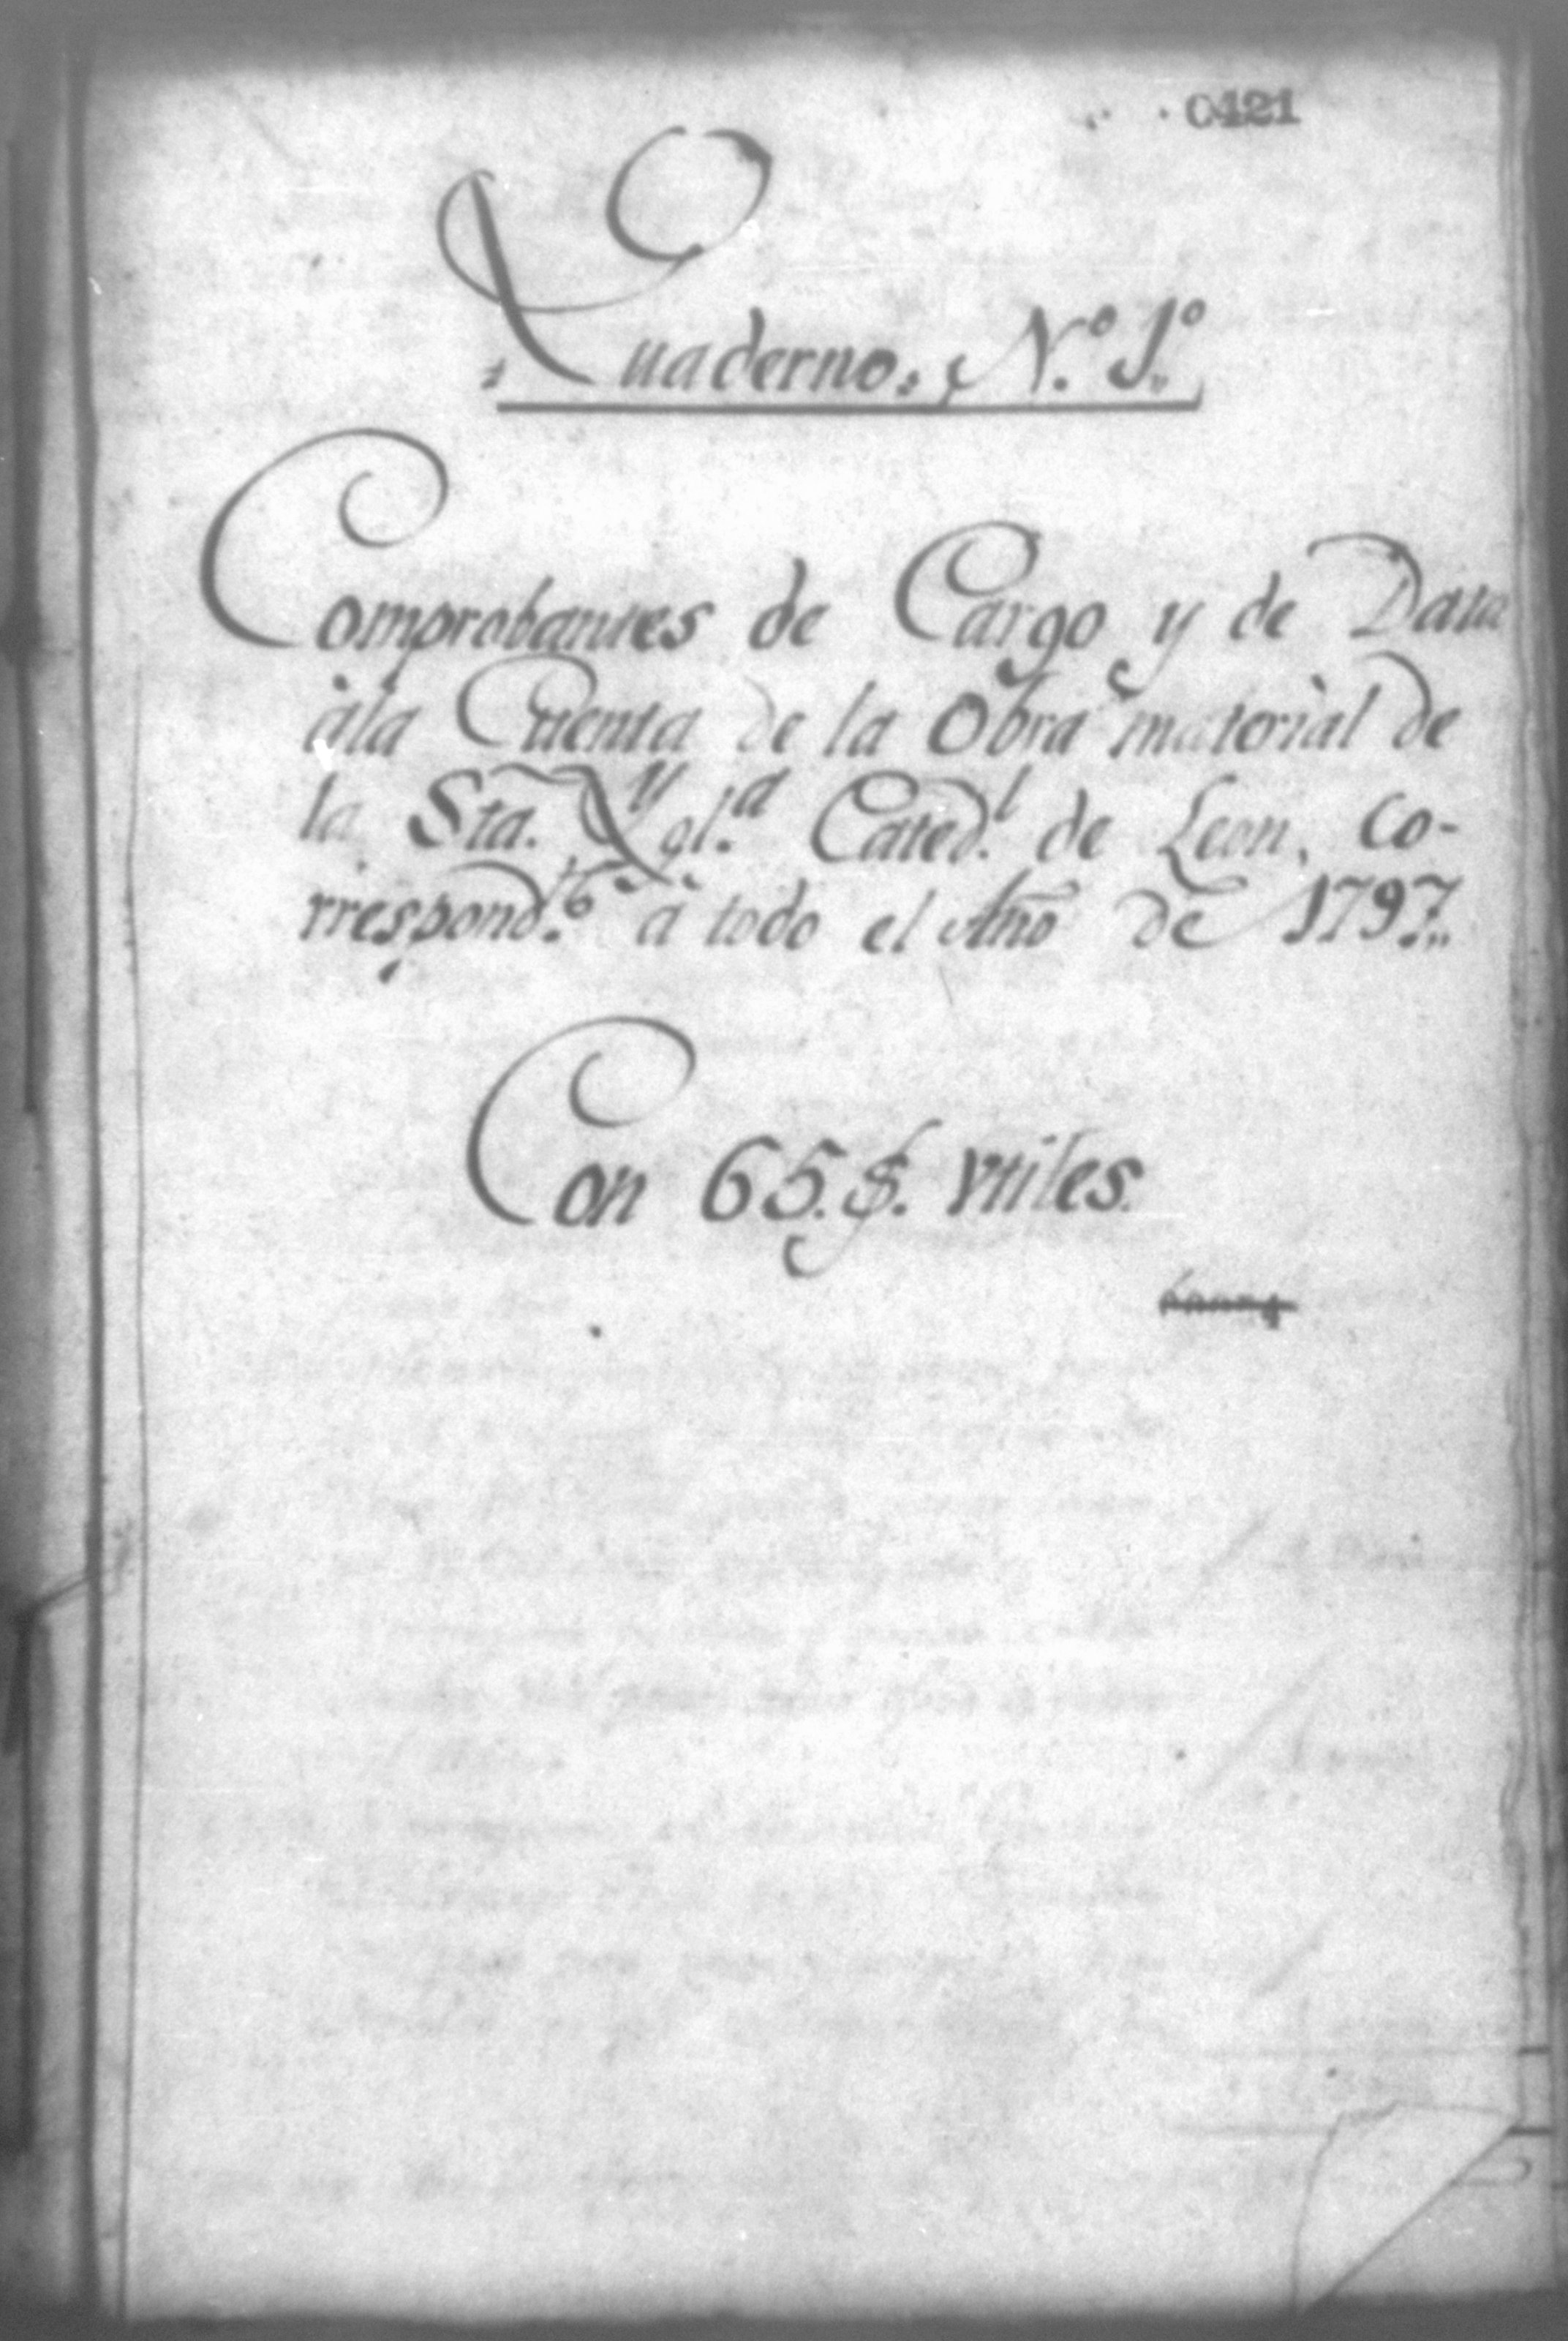 0421
Quaderno, N.º 1.º
Comprobantes de Cargo y de Data
àla Cuenta de la Obra material de
la Sta. Ygl.ª Cated.l de Leon, Co-
rrespond.te à todo el Año de 1797.
Con 65. f. vtiles.